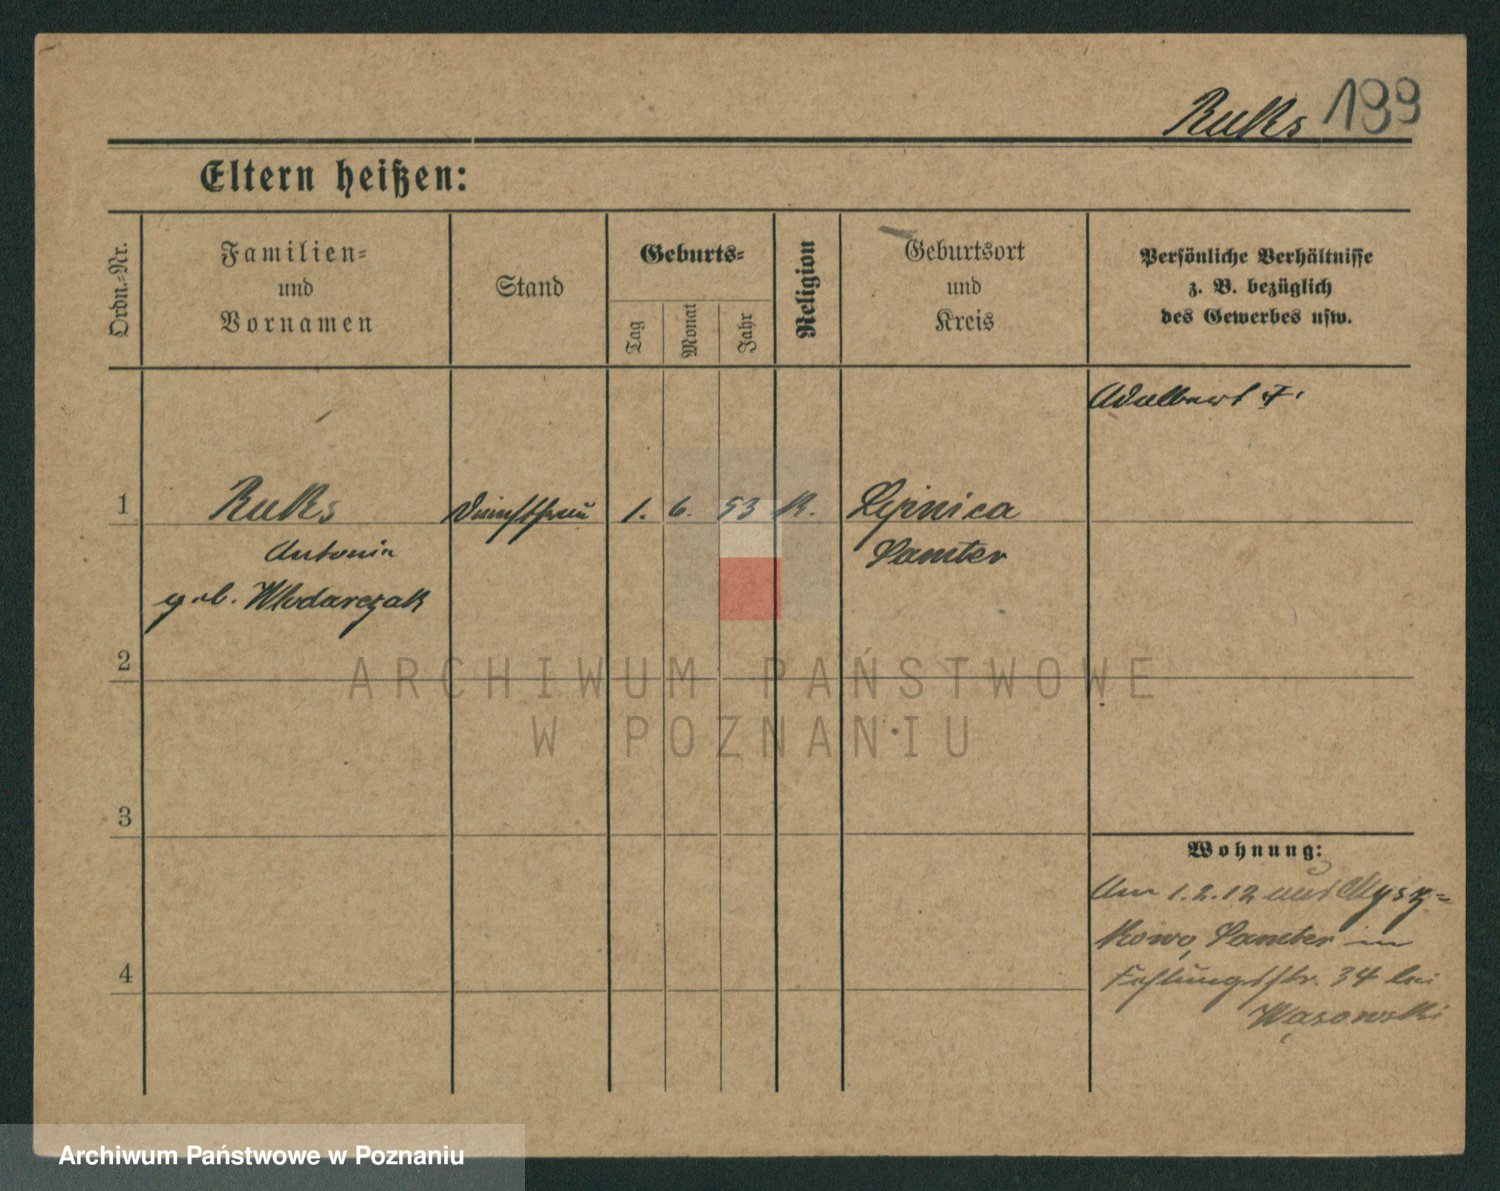 Ruks 199
Eltern heißen:
Ordn.-Nr.
Familien-
und
Vornamen
Stand
Geburts-
Tag
Monat
Jahr
Religion
Geburtsort
und
Kreis
Persönliche Verhältnisse
z. B. bezüglich
des Gewerbes usw.
Adalbert †.
1 Ruks 1. 6. 53 K.
Antonie Samter
geb. Wlodarczak
2
ARCHIWUM PAŃSTWOWE
W POZNANIU
3
Wohnung:
Am 1.2.12 aus Mysz-
kowo, Samter in
34 bei
4
Wąsowski
Archiwum Państwowe w Poznaniu